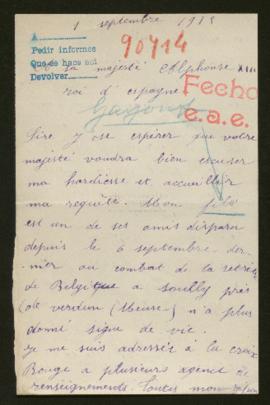 1 septembre 1915
A
Pedir informes
Que se hace aci
Devolver
90414
sa majesté Alphonse XIII
roi d'espagne
Fecho
e.a.e.
Sire j'ose espérer que votre
majesté voudra bien excuser
ma hardiesse et accueillir
ma requête. Mon fils
est un de ses amis disparu
depuis le 6 septembre der-
nier au combat de la retraite
de Belgique a Souilly près
(de verdun (Meuse) n'a plus
donné signe de vie.
je me suis adressés à la croix
Rouge a plusieurs agence de
renseignements. toutes mon